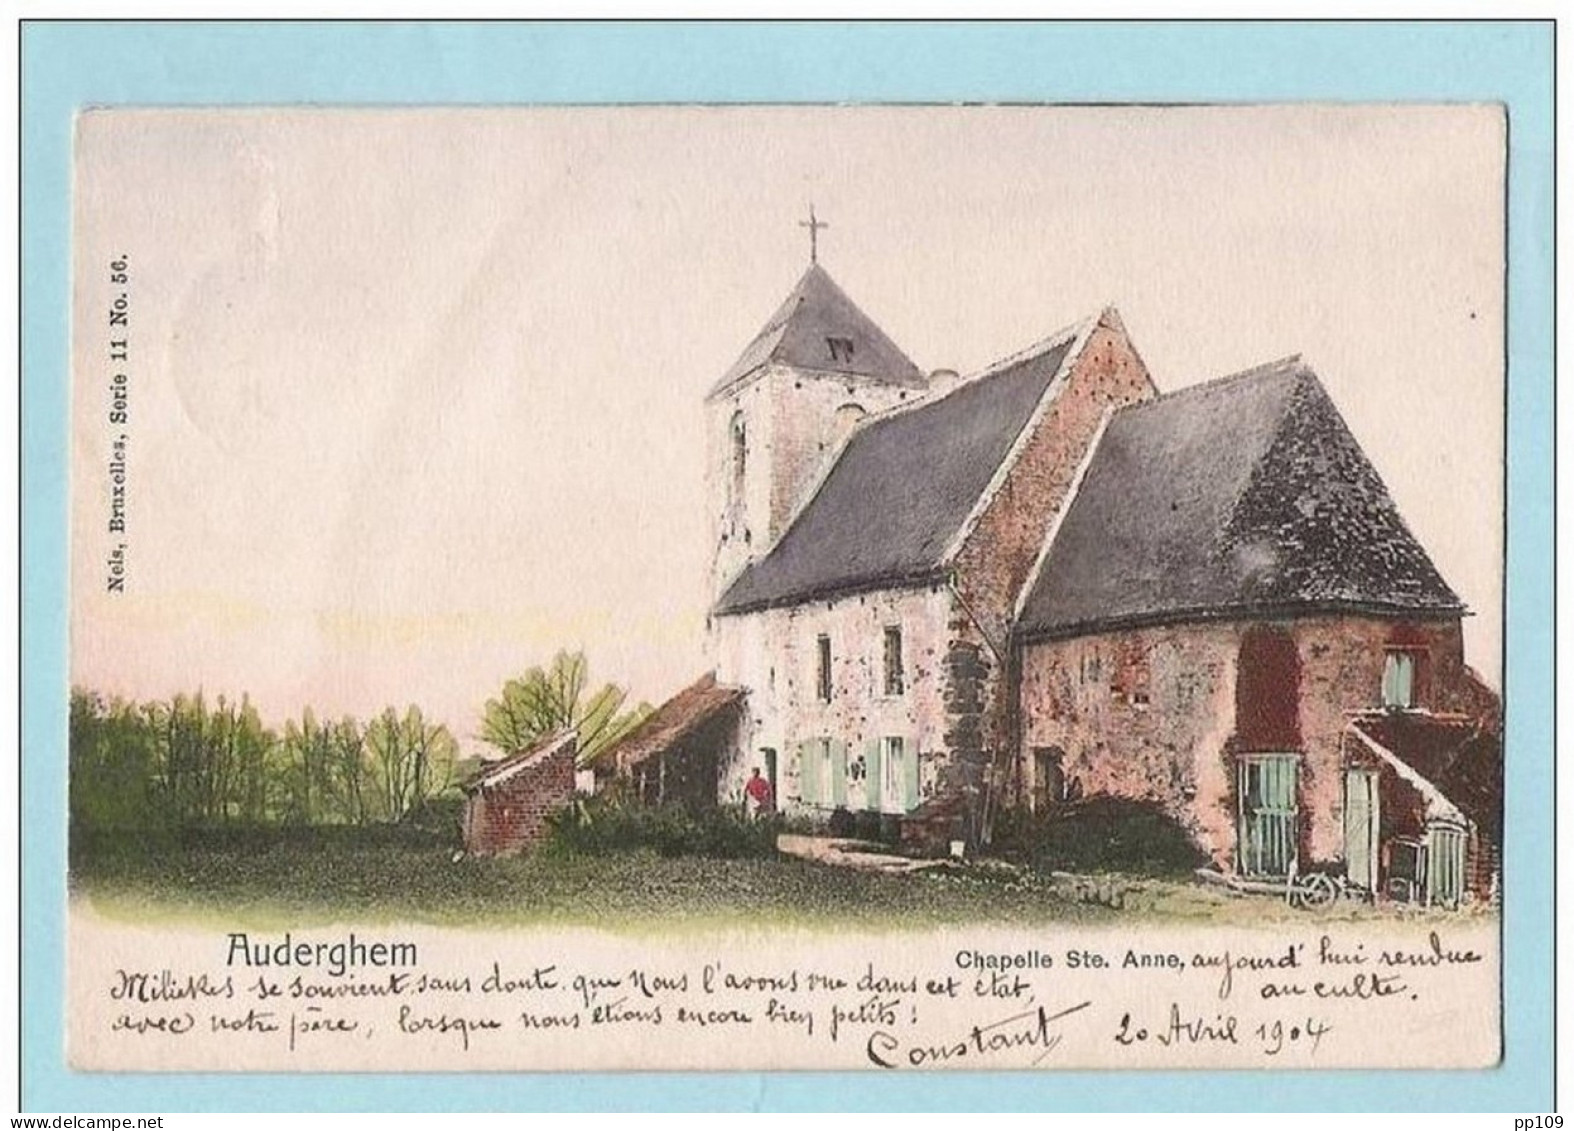 Nels, Bruxelles, Serie 11 No. 56.
Auderghem
Chapelle Ste. Anne, aujourd'hui rendue
au culte.
Miliekes se souvient sans doute que nous l'avons vue dans cet état,
avec notre père, lorsque nous étions encore bien petits!
Constant 20 Avril 1904
pp109